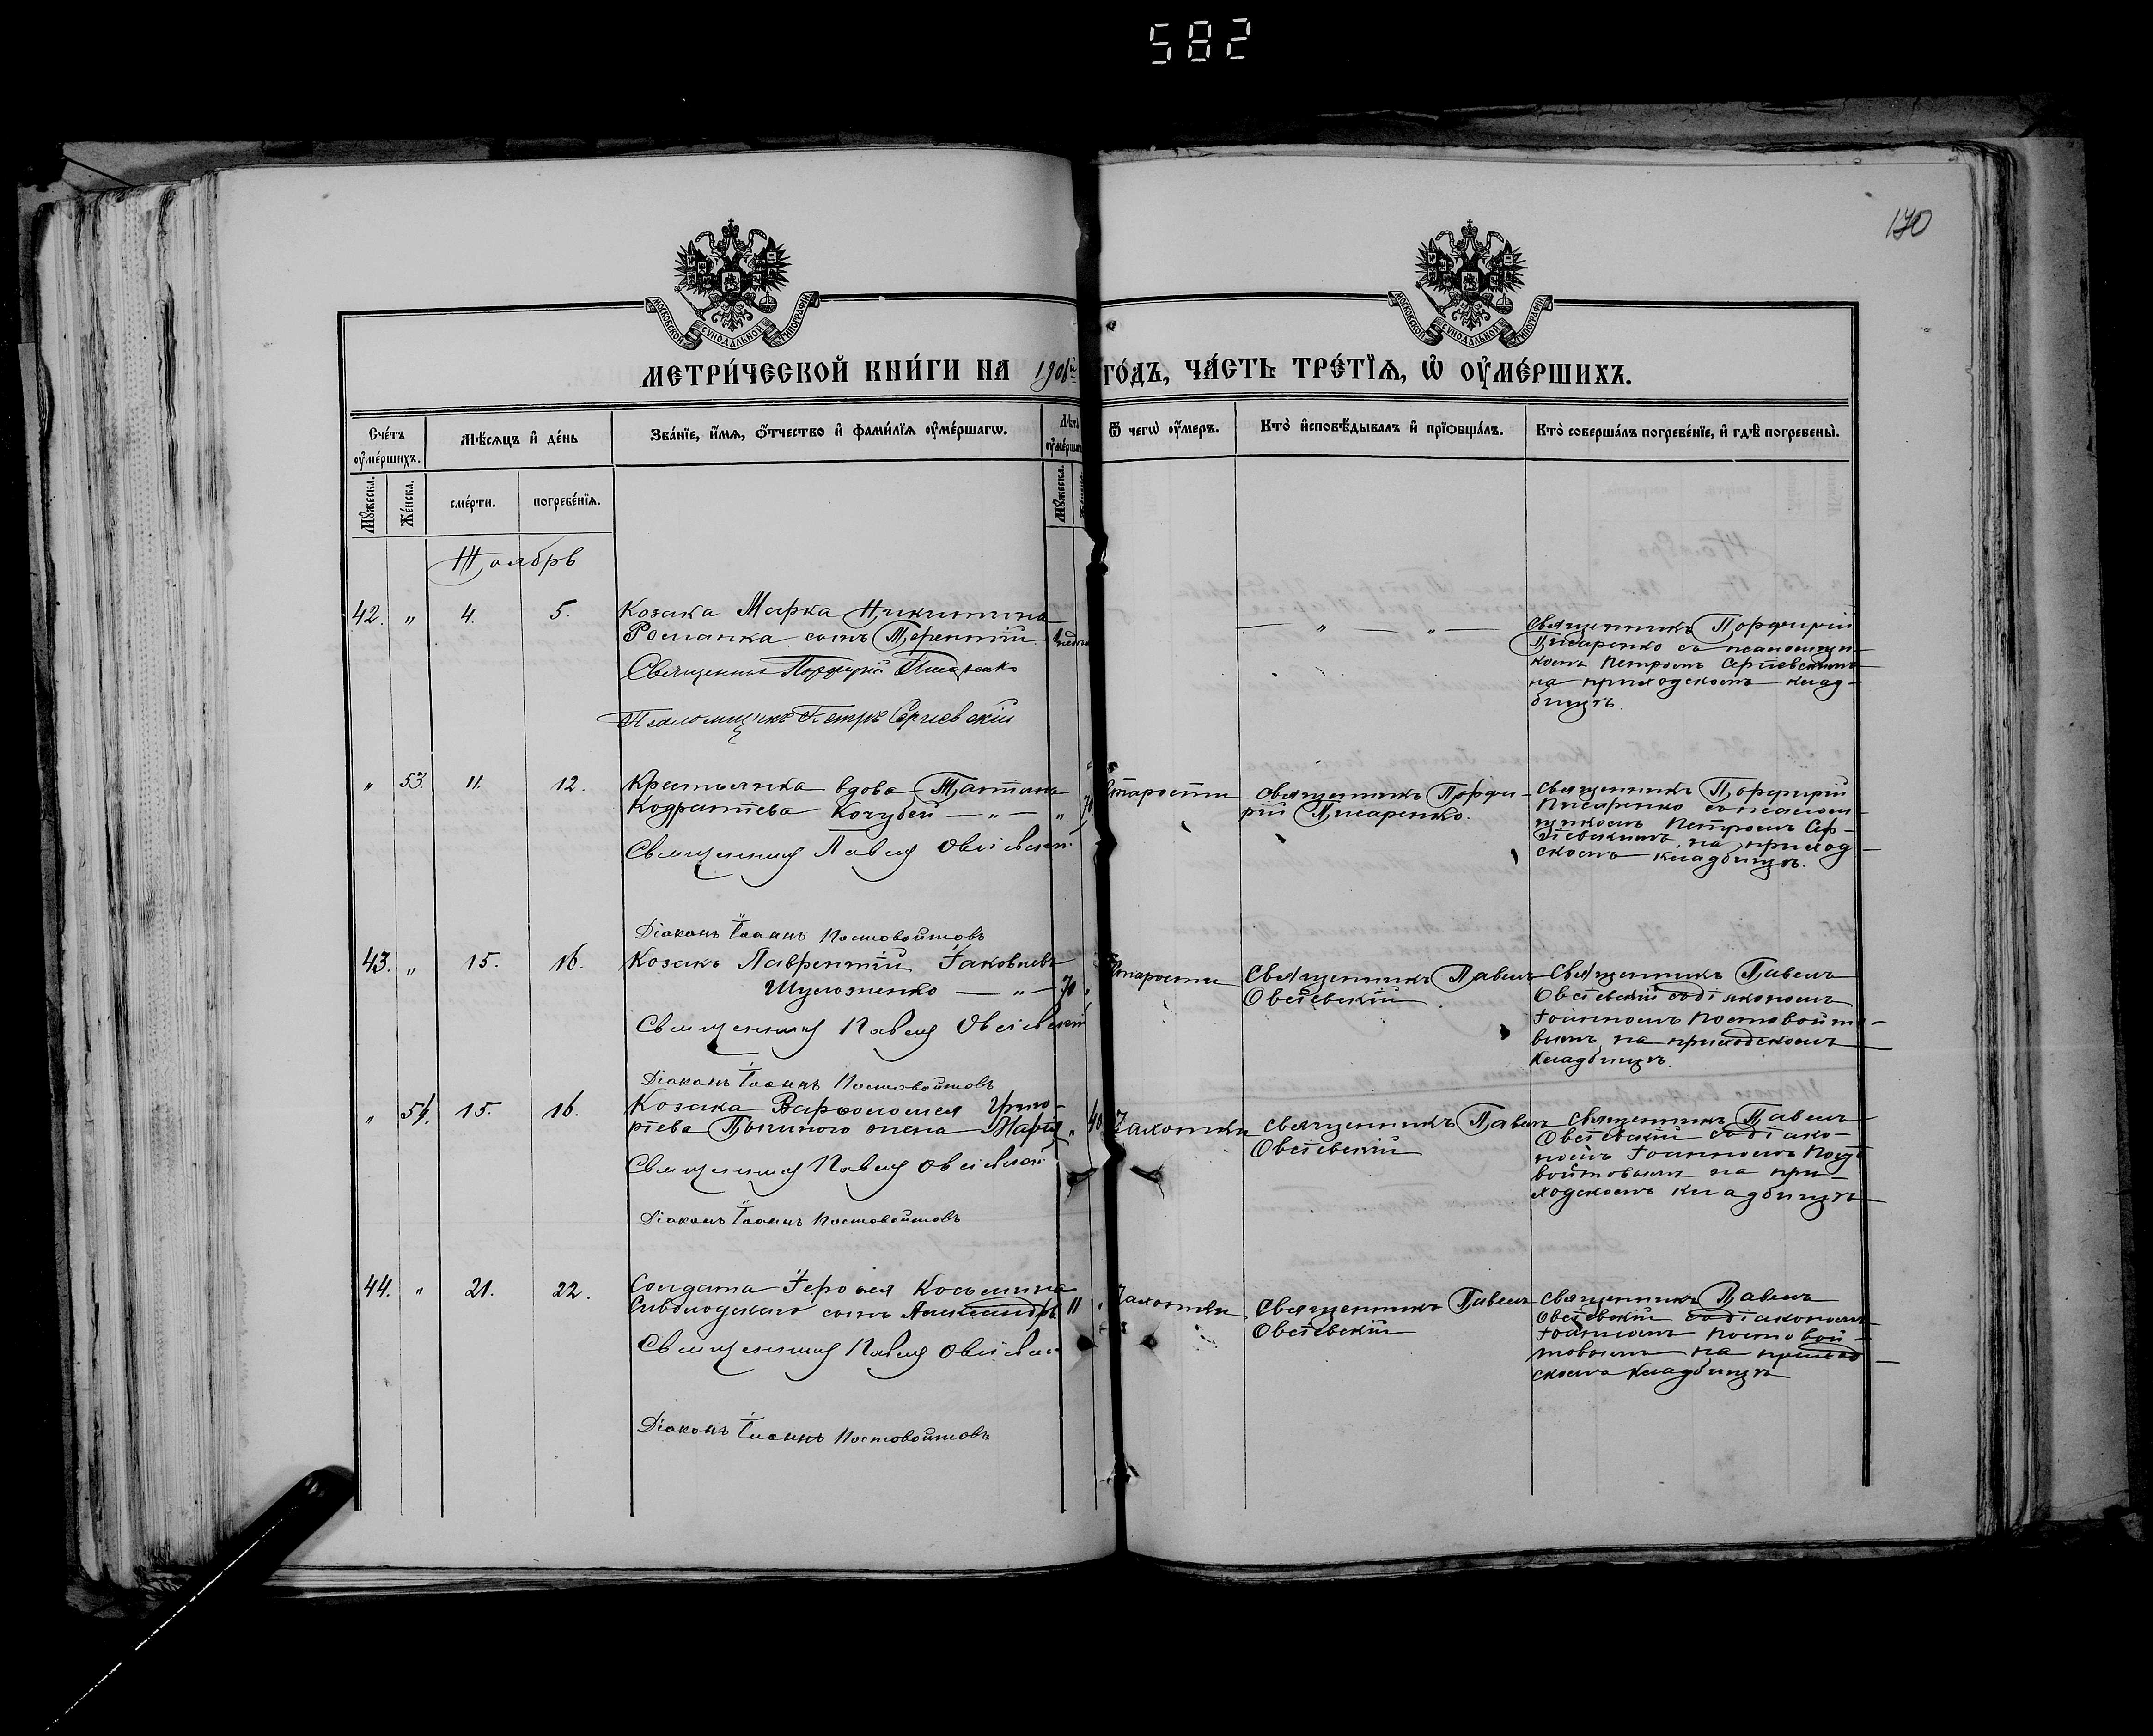 582
170
МОСКОВСКОЙ СѴНОДАЛЬНОЙ ТИПОГРАФІИ
МОСКОВСКОЙ СѴНОДАЛЬНОЙ ТИПОГРАФІИ
МЕТРИ́ЧЕСКОЙ КНИ́ГИ НА 1906й ГО́ДЪ, ЧА́СТЬ ТРЕ́ТЇѦ, Ѡ҆ ОУ҆МЕ́РШИХЪ.
Сче́тъ оу҆ме́ршихъ.
Мѣ́сѧцъ и҆ де́нь
Зва́нїе, и҆́мѧ, ѻ҆́тчество и҆ фами́лїѧ оу҆ме́ршагѡ.
Лѣ́т
оу҆ме́рш
Ѿ чегѡ̀ оу҆́меръ.
Кто̀ и҆сповѣ́дывалъ и҆ прїѡбща́лъ.
Кто̀ соверша́лъ погребе́нїе, и҆ гдѣ̀ погребены̀.
Мꙋ́жеска.
Же́нска.
сме́рти.
погребе́нїѧ.
Мꙋ́жеска.
Ноябрь
42. " 4. 5. Козака Марка Никитина
Романка сынъ Терентій
Священникъ Порфирій Писаренко
Псаломщикъ Петръ Сергіевскій
— " — " —
Священникъ Порфирій
Писаренко съ псаломщи-
комъ Петромъ Сергіевскимъ
на приходскомъ клад-
бищѣ.
" 53. 11. 12. Крестьянка вдова Татіана
Кодратіева Кочубей — " — " 70
Священникъ Павелъ Овсіевскій
Діаконъ Іоаннъ Постовойтовъ
Старости
Священникъ Порфи-
рій Писаренко.
Священникъ Порфирій
Писаренко съ псалом-
щикомъ Петромъ Сер-
гіевскимъ, на приход-
скомъ кладбищѣ.
43. " 15. 16. Козакъ Лаврентій Іаковлевъ
Шуложенко — " — 70 "
Священникъ Павелъ Овсіевскій
Діаконъ Іоаннъ Постовойтовъ
Старости
Священникъ Павелъ
Овсіевскій
Священникъ Павелъ
Овсіевскій со діакономъ
Іоанномъ Постовойто-
вымъ на приходскомъ
кладбищѣ.
" 54. 15. 16. Козака Варѳоломея Григо-
ріева жена Марія " 40
Священникъ Павелъ Овсіевскій
Діаконъ Іоаннъ Постовойтовъ
Чахотки
Священникъ Павелъ
Овсіевскій
Священникъ Павелъ
Овсіевскій со діако-
номъ Іоанномъ Посто
войтовымъ на при-
ходскомъ кладбищѣ
44. " 21. 22. Солдата Косьмина
сынъ Александръ 11 "
Священникъ Павелъ Овсіевскій
Діаконъ Іоаннъ Постовойтовъ
Чахотки
Священникъ Павелъ
Овсіевскій
Священникъ Павелъ
Овсіевскій со діакономъ
Іоанномъ Постовой-
товымъ на приход-
скомъ кладбищѣ